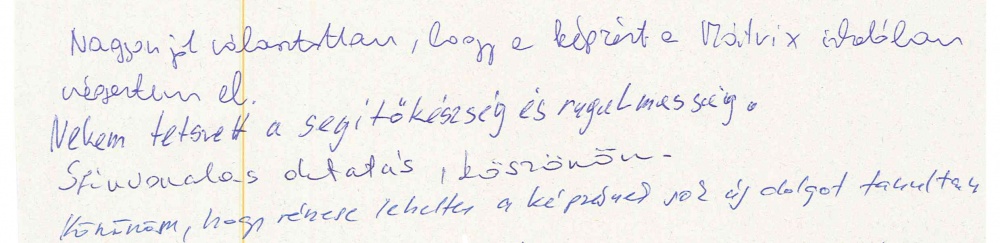 Nagyon jól választottam, hogy a képzést a Mátrix irodában
végeztem el.
Nekem tetszett a segítőkészség és rugalmasság.
Színvonalas oktatás, köszönöm.
Köszönöm, hogy részese lehettem a képzésnek sok új dolgot tanultam